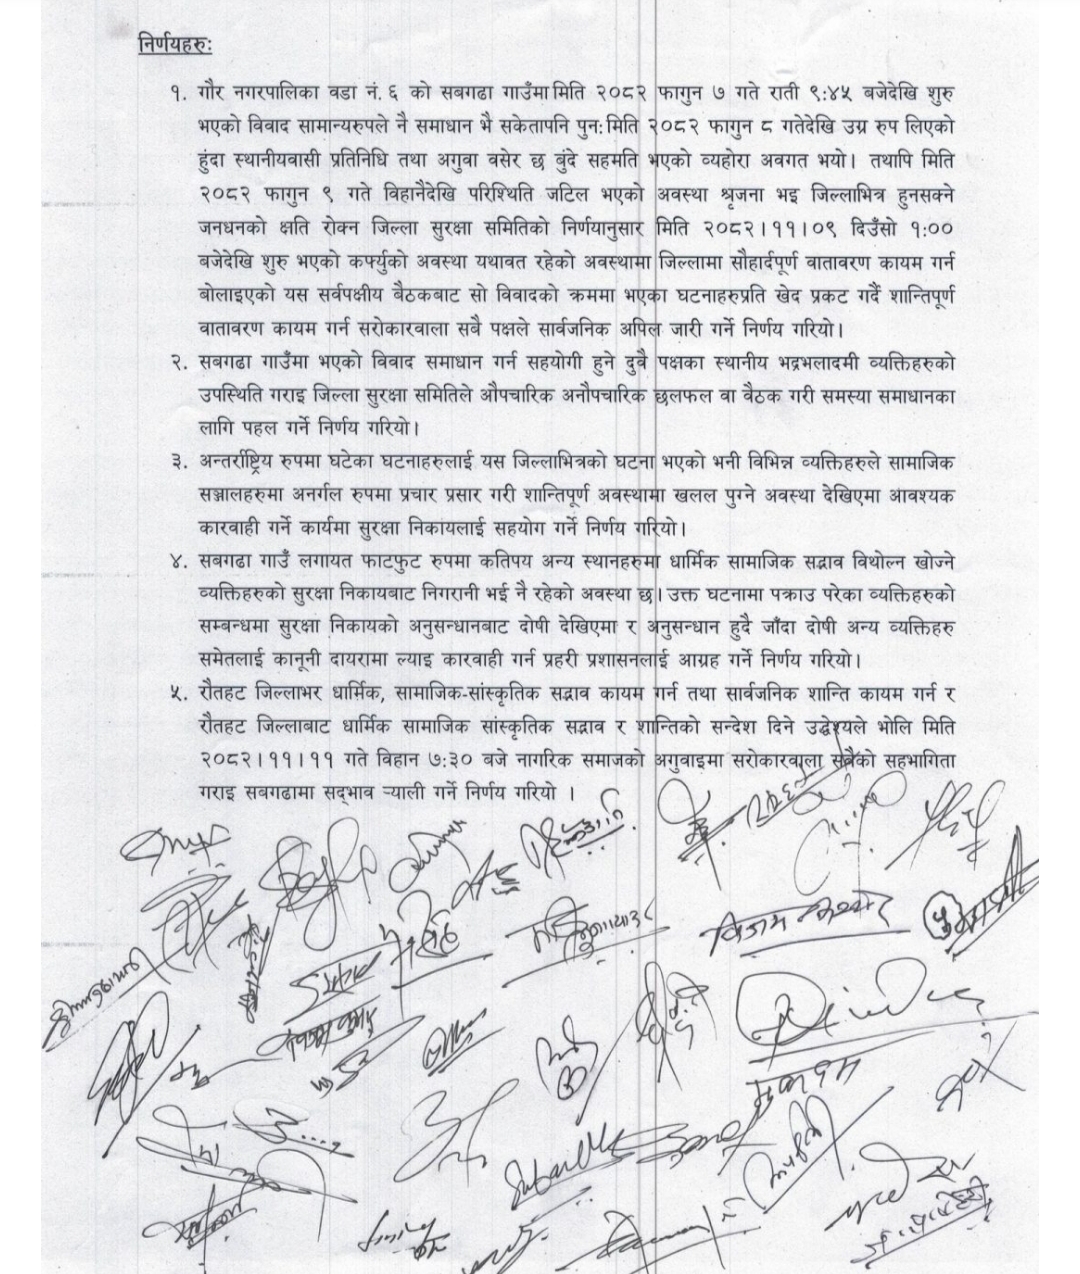 निर्णयहरुः
१. गौर नगरपालिका वडा नं. ६ को सबगढा गाउँमा मिति २०८२ फागुन ७ गते राती ९:४५ बजेदेखि शुरु
भएको विवाद सामान्यरुपले नै समाधान भै सकेतापनि पुन: मिति २०८२ फागुन ८ गतेदेखि उग्र रुप लिएको
हुंदा स्थानीयवासी प्रतिनिधि तथा अगुवा वसेर छ बुंदे सहमति भएको व्यहोरा अवगत भयो। तथापि मिति
२०८२ फागुन ९ गते विहानैदेखि परिश्थिति जटिल भएको अवस्था श्रृजना भइ जिल्लाभित्र हुनसक्ने
जनधनको क्षति रोक्न जिल्ला सुरक्षा समितिको निर्णयानुसार मिति २०८२।११।०९ दिउँसो १:००
बजेदेखि शुरु भएको कर्फ्युको अवस्था यथावत रहेको अवस्थामा जिल्लामा सौहार्दपूर्ण वातावरण कायम गर्न
बोलाइएको यस सर्वपक्षीय बैठकबाट सो विवादको क्रममा भएका घटनाहरुप्रति खेद प्रकट गर्दै शान्तिपूर्ण
वातावरण कायम गर्न सरोकारवाला सबै पक्षले सार्वजनिक अपिल जारी गर्ने निर्णय गरियो।
२. सबगढा गाउँमा भएको विवाद समाधान गर्न सहयोगी हुने दुवै पक्षका स्थानीय भद्रभलादमी व्यक्तिहरुको
उपस्थिति गराइ जिल्ला सुरक्षा समितिले औपचारिक अनौपचारिक छलफल वा बैठक गरी समस्या समाधानका
लागि पहल गर्ने निर्णय गरियो।
३. अन्तर्राष्ट्रिय रुपमा घटेका घटनाहरुलाई यस जिल्लाभित्रको घटना भएको भनी विभिन्न व्यक्तिहरुले सामाजिक
सञ्जालहरुमा अनर्गल रुपमा प्रचार प्रसार गरी शान्तिपूर्ण अवस्थामा खलल पुग्ने अवस्था देखिएमा आवश्यक
कारवाही गर्ने कार्यमा सुरक्षा निकायलाई सहयोग गर्ने निर्णय गरियो।
४. सबगढा गाउँ लगायत फाटफुट रुपमा कतिपय अन्य स्थानहरुमा धार्मिक सामाजिक सद्भाव विथोल्न खोज्ने
व्यक्तिहरुको सुरक्षा निकायबाट निगरानी भई नै रहेको अवस्था छ। उक्त घटनामा पक्राउ परेका व्यक्तिहरुको
सम्बन्धमा सुरक्षा निकायको अनुसन्धानबाट दोषी देखिएमा र अनुसन्धान हुदै जाँदा दोषी अन्य व्यक्तिहरु
समेतलाई कानूनी दायरामा ल्याइ कारवाही गर्न प्रहरी प्रशासनलाई आग्रह गर्ने निर्णय गरियो।
५. रौतहट जिल्लाभर धार्मिक, सामाजिक-सांस्कृतिक सद्भाव कायम गर्न तथा सार्वजनिक शान्ति कायम गर्न र
रौतहट जिल्लाबाट धार्मिक सामाजिक सांस्कृतिक सद्भाव र शान्तिको सन्देश दिने उद्धेश्यले भोलि मिति
२०८२।११।११ गते विहान ७:३० बजे नागरिक समाजको अगुवाइमा सरोकारवाला सबैको सहभागिता
गराइ सबगढामा सद्‌भाव र्‍याली गर्ने निर्णय गरियो ।